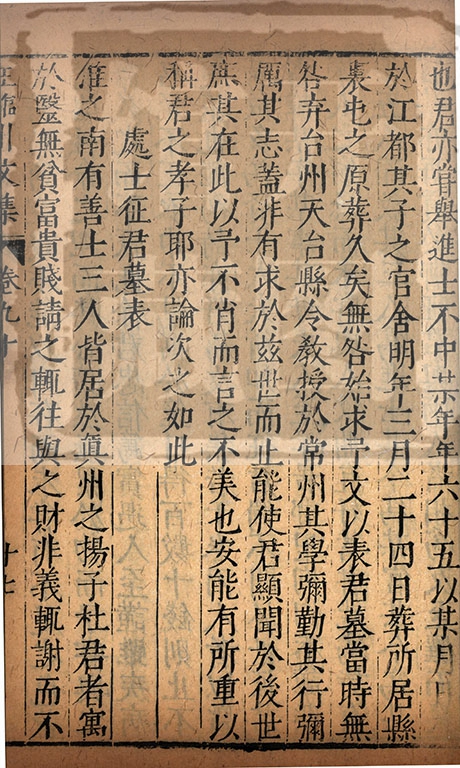 也君亦嘗舉進士不中某年年六十五以某月日
於江都其子之官舍明年三月二十四日葬所居縣
裏屯之原葬久矣無咎始求予文以表君墓當時無
咎弃台州天台縣令教授於常州其學彌勤其行彌
厲其志蓋非有求於茲世而止能使君顯聞於後世
庶其在此以予不肖而言之不美也安能有所重以
稱君之孝子耶亦論次之如此
處士征君墓表
淮之南有善士三人皆居於眞州之揚子杜君者寓
於毉無貧富貴賤請之輒往與之財非義輒謝而不
王臨川文集 卷九十 十七